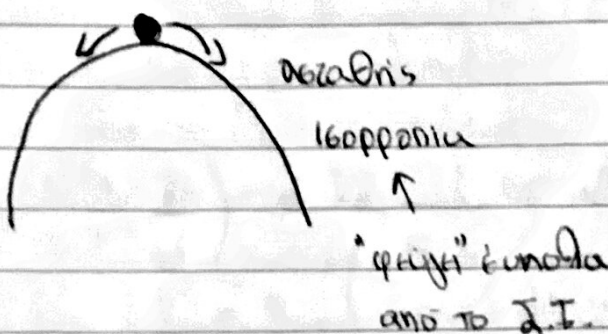 ασταθής
ισορροπία
"φεύγει" εύκολα
από το Σ.Ι.